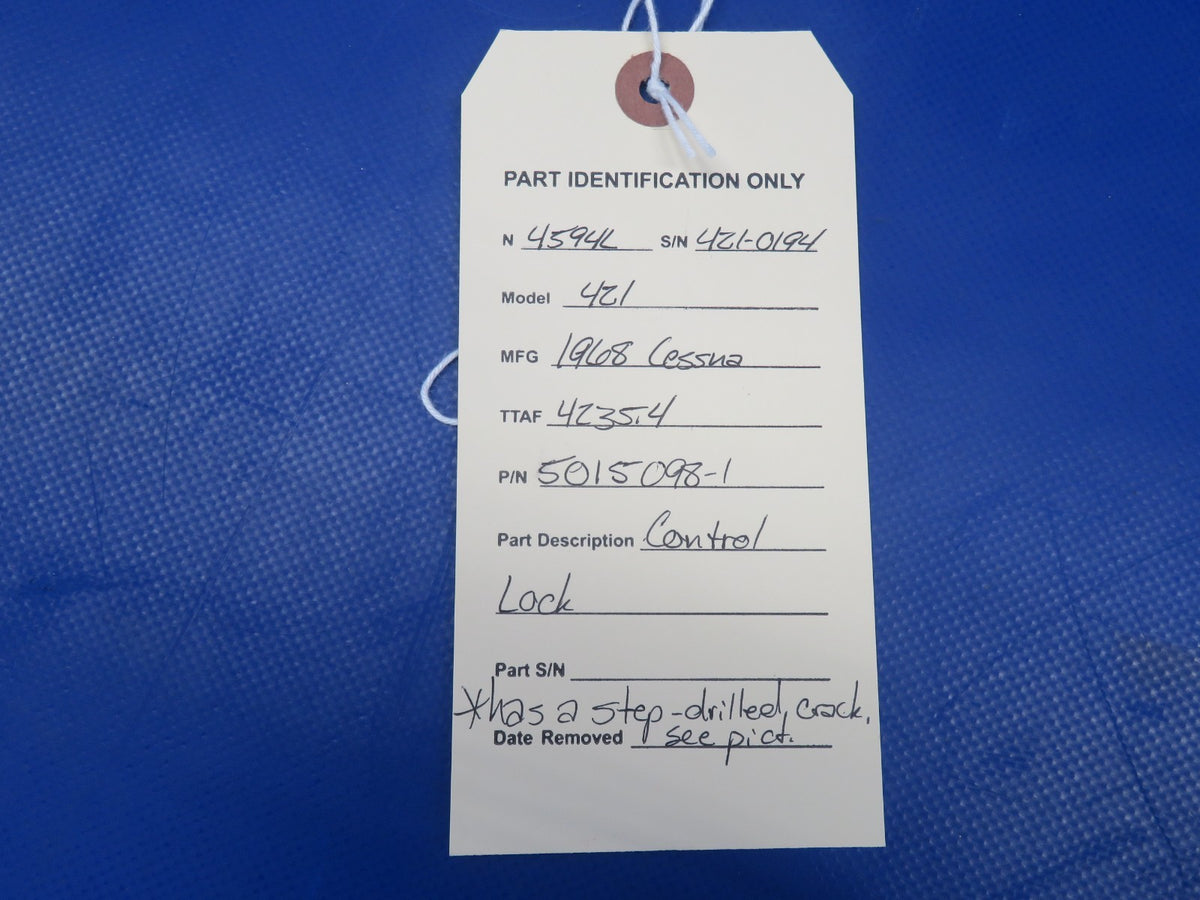 PART IDENTIFICATION ONLY
N 4594L S/N 421-0194
Model 421
MFG 1968 Cessna
TTAF 4235.4
P/N 5015098-1
Part Description Control
Lock
Part S/N
*has a step-drilled, crack,
Date Removed see pict.